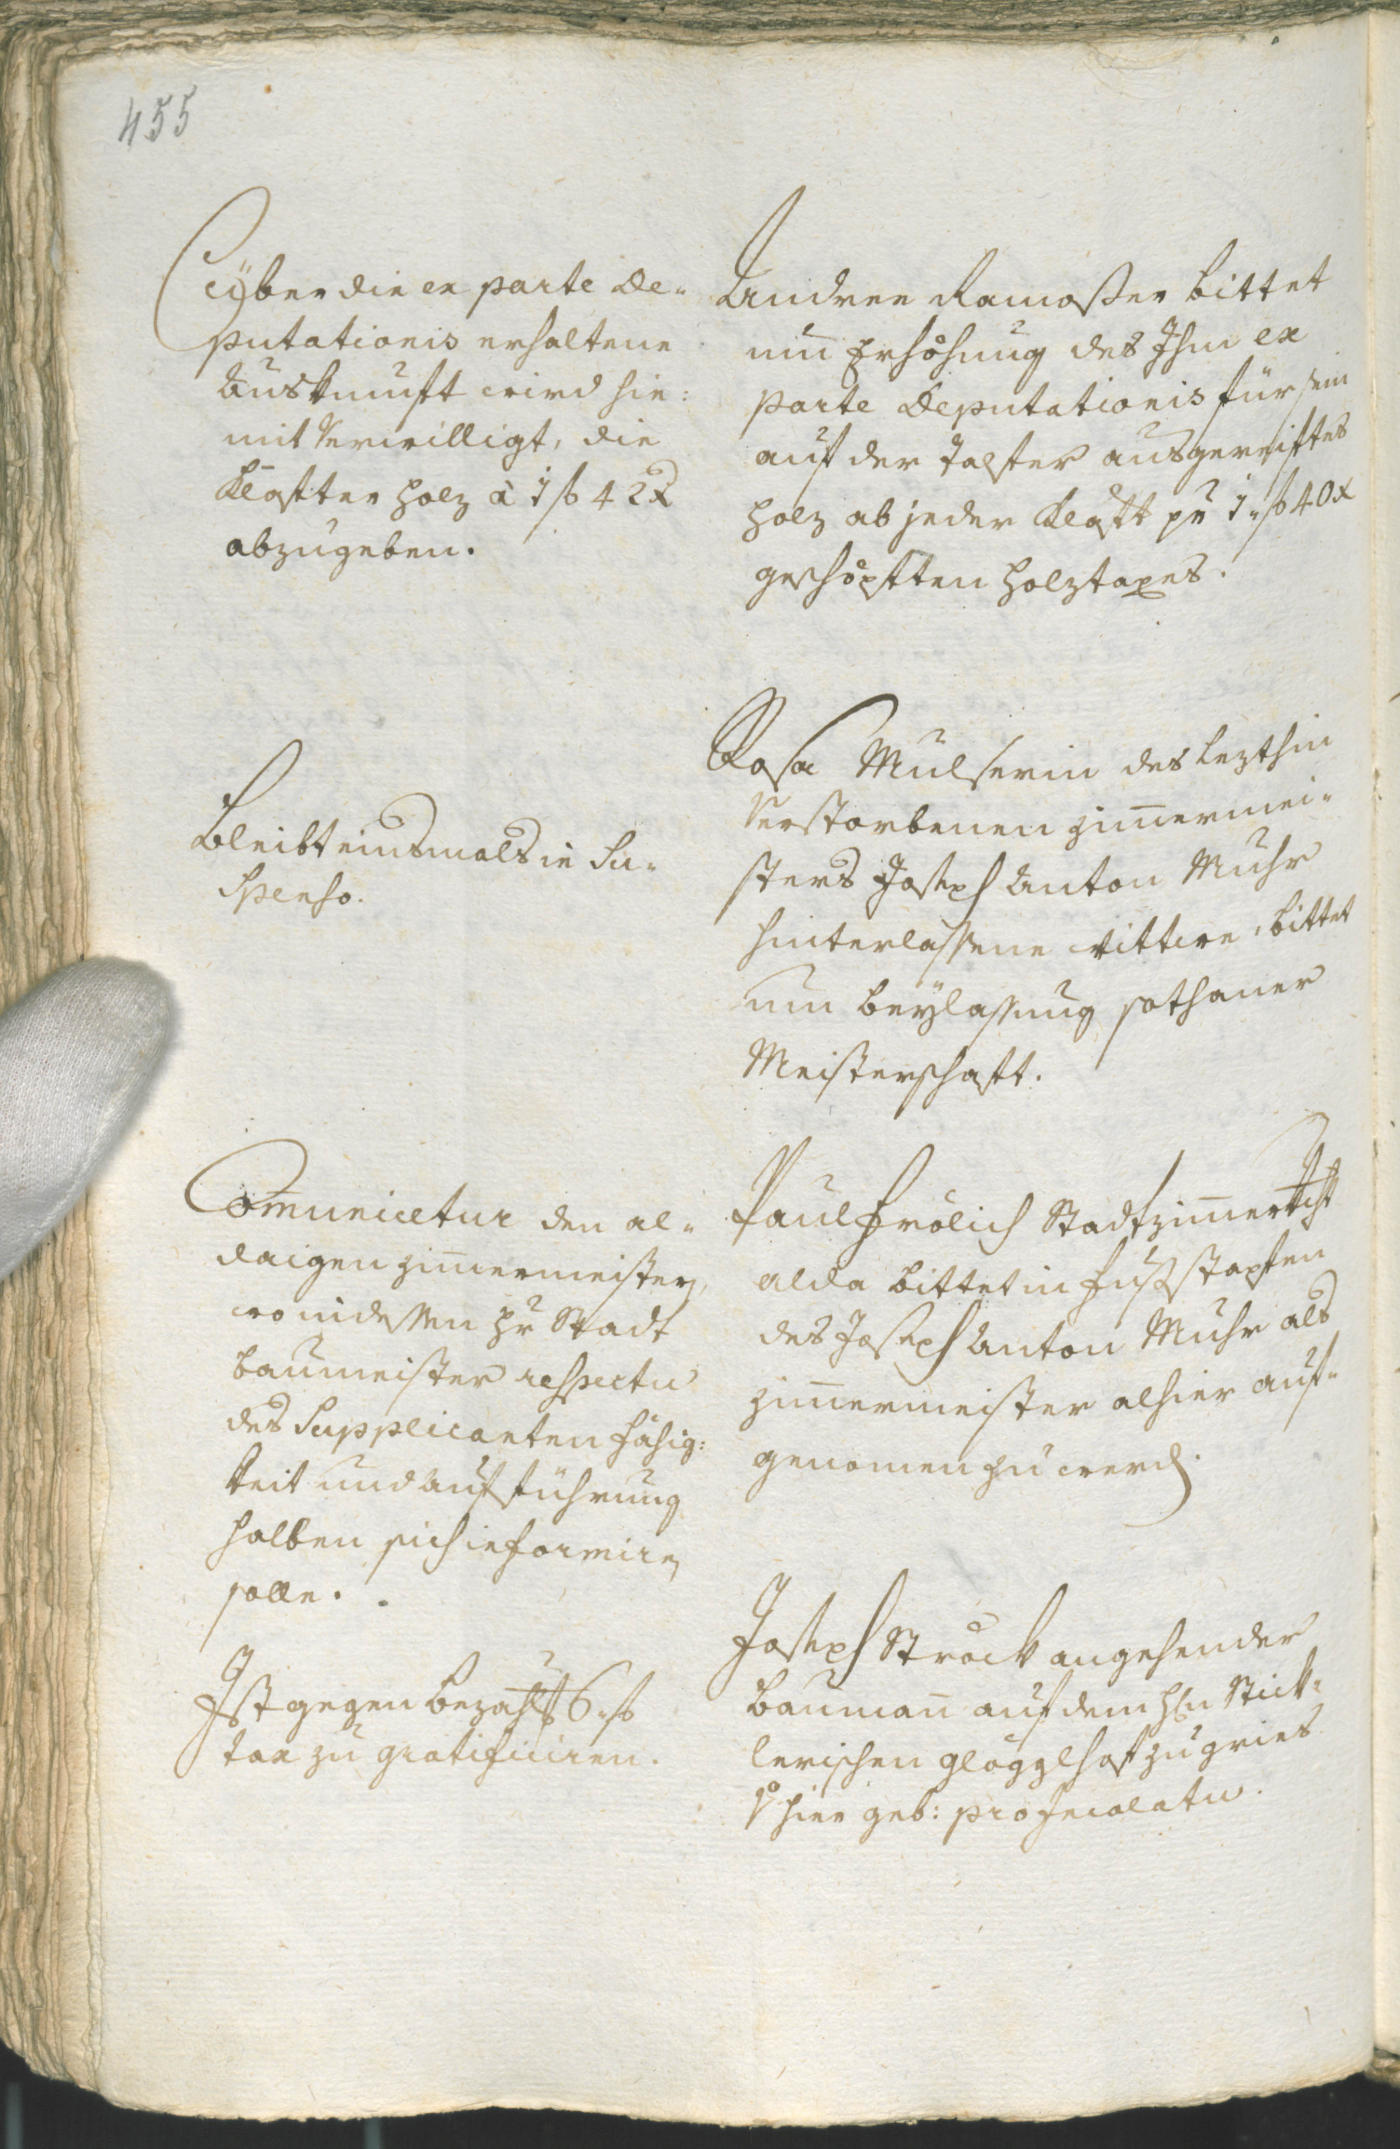 455
Über die ex parte De-
putationis erhaltene
Auskunfft wird hie:
mit Verwilligt, die
Klaffter holz à 1 f 42 x
abzugeben.
Andree Ramoser bittet
um Erhöhung des Ihm ex
parte Deputationis für sein
auf der Talfer ausgereiftes
holz ab jeder Klafft pr 1 f 40 x
geschöpften holztaxes.
Bleibt einsmals in Su-
spenso.
Rosa Mulserin des lezthin
Verstorbenen zim̄ermei-
sters Joseph Anton Muhr
hinterlassene Wittwe, bittet
um beylassung sothaner
Meisterschafft.
Com̄unicetur den al-
daigen zim̄ermeistern,
wo indessen hr Stadt
baumeister respectu
des Supplicanten fähig:
keit und aufführung
halben sich informiren
solle.
Paul Frölich Stadtzim̄erkht
alda bittet in fußstapfen
des Joseph Anton Muhr als
zim̄ermeister alhier auf-
genomen zu werd.
Ist gegen bezahlt 6 f
tax zu gratificiren.
Joseph Strock angehender
bauman̄ auf dem hn Stick-
lerischen glögglhof zu gries
hier geb: pro Incolatu.